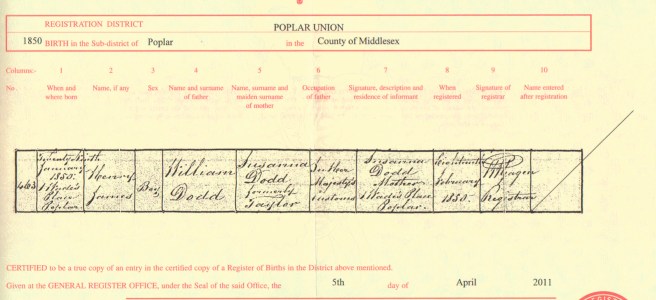 REGISTRATION DISTRICT
POPLAR UNION
1850 BIRTH in the Sub-district of Poplar in the County of Middlesex
Columns:- 1 2 3 4 5 6 7 8 9 10
No. When and where born Name, if any Sex Name and surname of father Name, surname and maiden surname of mother Occupation of father Signature, description and residence of informant When registered Signature of registrar Name entered after registration
463
January
1850.
Place
Poplar.
Henry
James
Boy
William
Dodd
Susanna
Dodd
formerly
Taylor
In Her
Majesty's
Customs
Susanna
Dodd
Mother
Place
Poplar.
February
1850.
Registrar
CERTIFIED to be a true copy of an entry in the certified copy of a Register of Births in the District above mentioned.
Given at the GENERAL REGISTER OFFICE, under the Seal of the said Office, the 5th day of April 2011